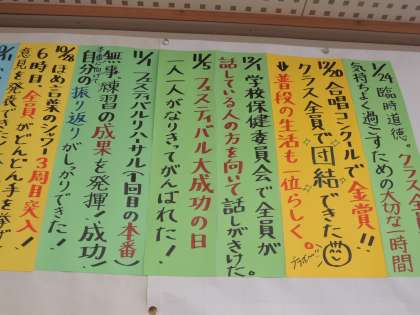 クラス全
1/24 臨時道徳。
気持ちよく過ごすための大切な一時間
12/20 合唱コンクールで金賞!!
クラス全員で団結できた
ブラボー!!
⬇普段の生活も一位らしく。
12/1 学校保健委員会で全員が
話している人の方を向いて話しがきけた。
11/5 フェスティバル大成功の日
一人一人がなりきってがんばれた!
11/1 フェスティバルリハーサル(1回目の本番)
無事、練習の成果を発揮!成功!
自分の振り返りがしっかりできた!
10/18 ほめ言葉のシャワー3周目突入!
6時目、全員がどんどん手を挙げ
意見を発表できた